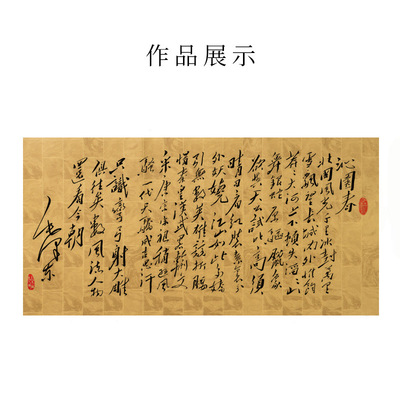 作品展示
沁園春
北国風光千里冰封萬里
雪飘望長城内外惟餘
莽莽大河上下顿失滔滔山
舞銀蛇原驱腊象
欲與天公試比高須
晴日看红装素裹分
外妖娆江山如此多娇
引無數英雄競折腰
惜秦皇漢武略输文
采唐宗宋祖稍逊風
骚一代天骄成吉思汗
只識彎弓射大雕
俱往矣數風流人物
還看今朝
毛泽东